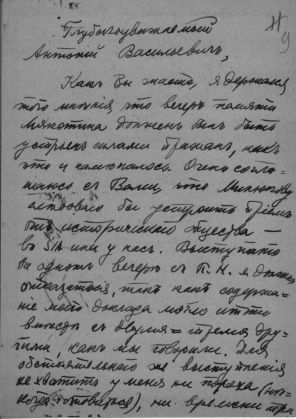 Глубокоуважаемый
Антоній Васильевичъ,
Какъ Вы знаете, я держался
того мнѣнія что вечеръ памяти
Мякотина долженъ былъ быть
устроенъ силами пражанъ, какъ
это и намѣчалось. Очень согла-
шаюсь съ Вами, что Милюкову
слѣдовало бы устроить пріемъ
отъ историческаго общества –
въ или у насъ. Выступать
на одномъ вечерѣ съ П. Н. я долженъ
отказаться, такъ какъ содержа-
ніе моего доклада могло итти
вмѣстѣ съ двумя – тремя дру-
гими, какъ мы говорили. Для
обстоятельнаго же выступленія
не хватитъ у меня ни пороха (ни-
когда готовиться), ни времени